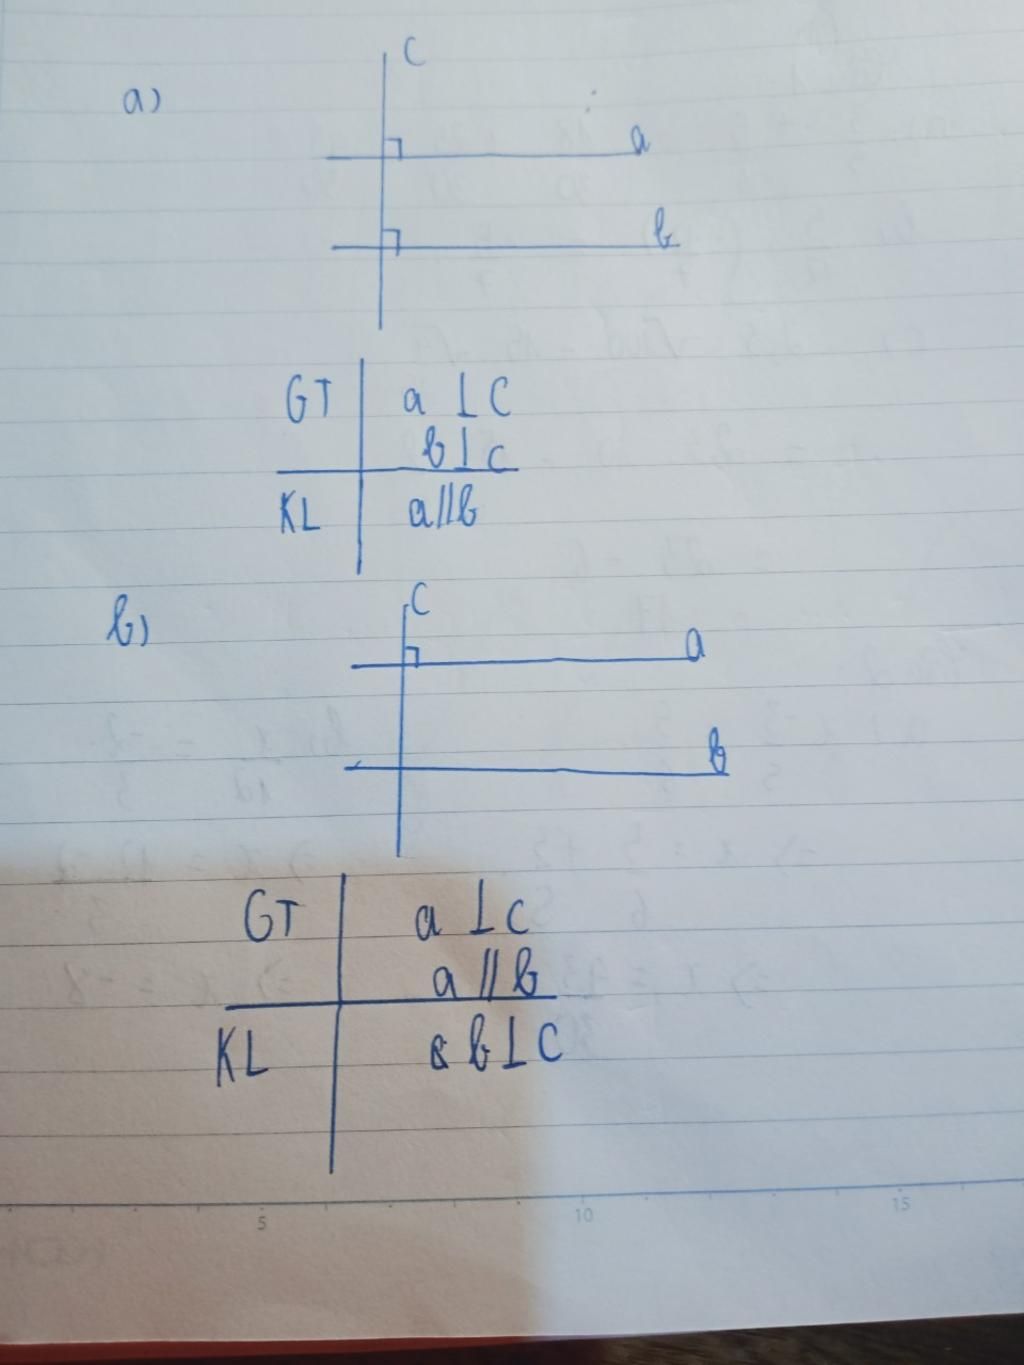 a)
c
a
b
GT a ⊥ c
b ⊥ c
KL a // b
b)
c
a
b
GT a ⊥ c
a // b
KL b ⊥ c
5 10 15